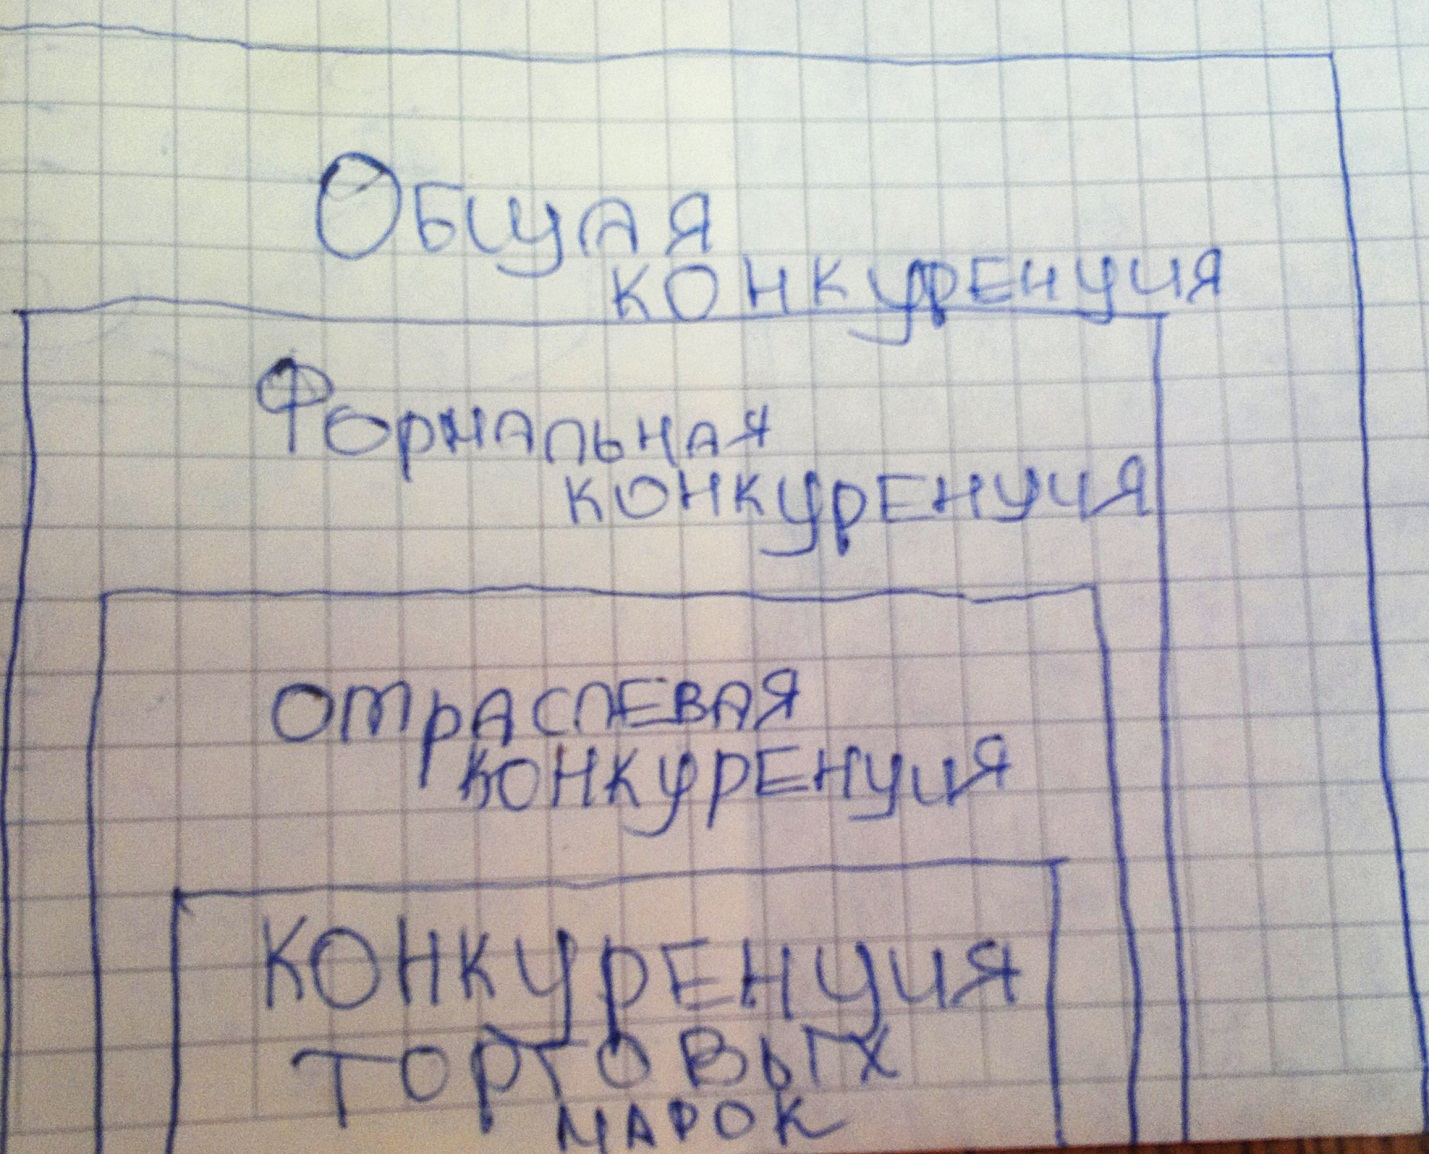 Общая
конкуренция
Формальная
конкуренция
отраслевая
конкуренция
конкуренция
торговых
марок